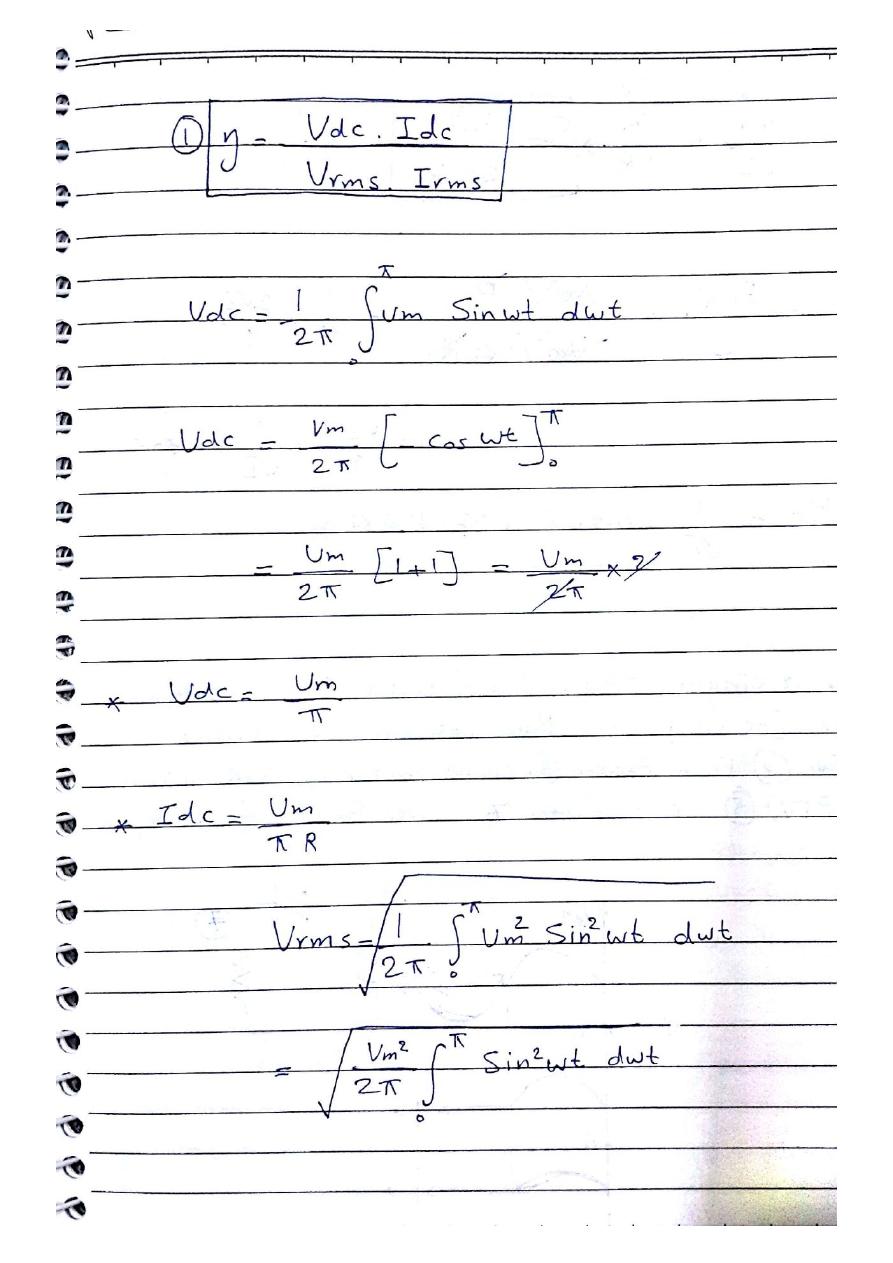 ① η = Vdc . Idc / Vrms . Irms
Vdc = 1/2π ∫₀^π Vm Sin wt dwt
Vdc = Vm/2π [- cos wt]₀^π
= Vm/2π [1+1] = Vm/2π × 2
* Vdc = Vm/π
* Idc = Vm/πR
Vrms = √(1/2π ∫₀^π Vm² Sin² wt dwt)
= √(Vm²/2π ∫₀^π Sin² wt dwt)